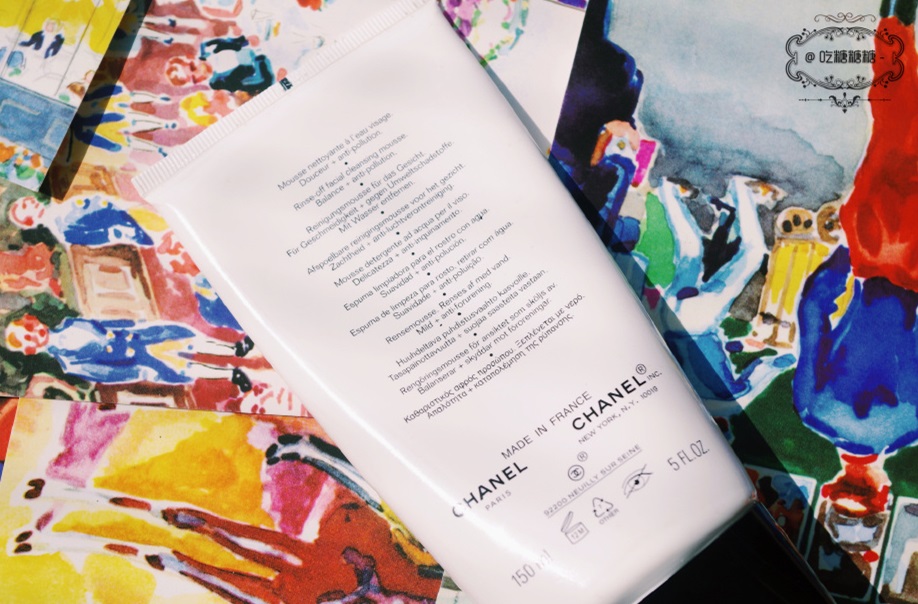 @ 吃糖糖糖 -
Mousse nettoyante à l'eau visage.
Douceur + anti-pollution
Rinse-off facial cleansing mousse.
Balance + anti-pollution.
Reinigungsmousse für das Gesicht.
Für Geschmeidigkeit + gegen Umweltschadstoffe.
Mit Wasser entfernen
Afspoelbare reinigingsmousse voor het gezicht.
Zachtheid + anti-luchtverontreiniging
Mousse detergente ad acqua per il viso.
Delicatezza + anti-inquinamento.
Espuma limpiadora para el rostro con agua.
Suavidad + anti polución.
Espuma de limpeza para rosto, retirar com água.
Suavidade + anti-poluição
Rensemousse. Renses af med vand.
Mild + anti-forurening
Huuhdeltava puhdistusvaahto kasvoille,
Tasapainottavuutta + suojaa saasteita vastaan.
Rengöringsmousse för ansiktet som sköljs av.
Balanserar + skyddar mot föroreningar
Καθαριστικός αφρός προσώπου. Ξεπλένεται με νερό.
Απαλότητα + καταπολέμηση της ρύπανσης.
MADE IN FRANCE
CHANEL
PARIS
CHANEL® INC.
NEW YORK, N.Y. 10019
®
92200 NEUILLY SUR SEINE
12 M
OTHER
150 ml
5 FL.OZ.